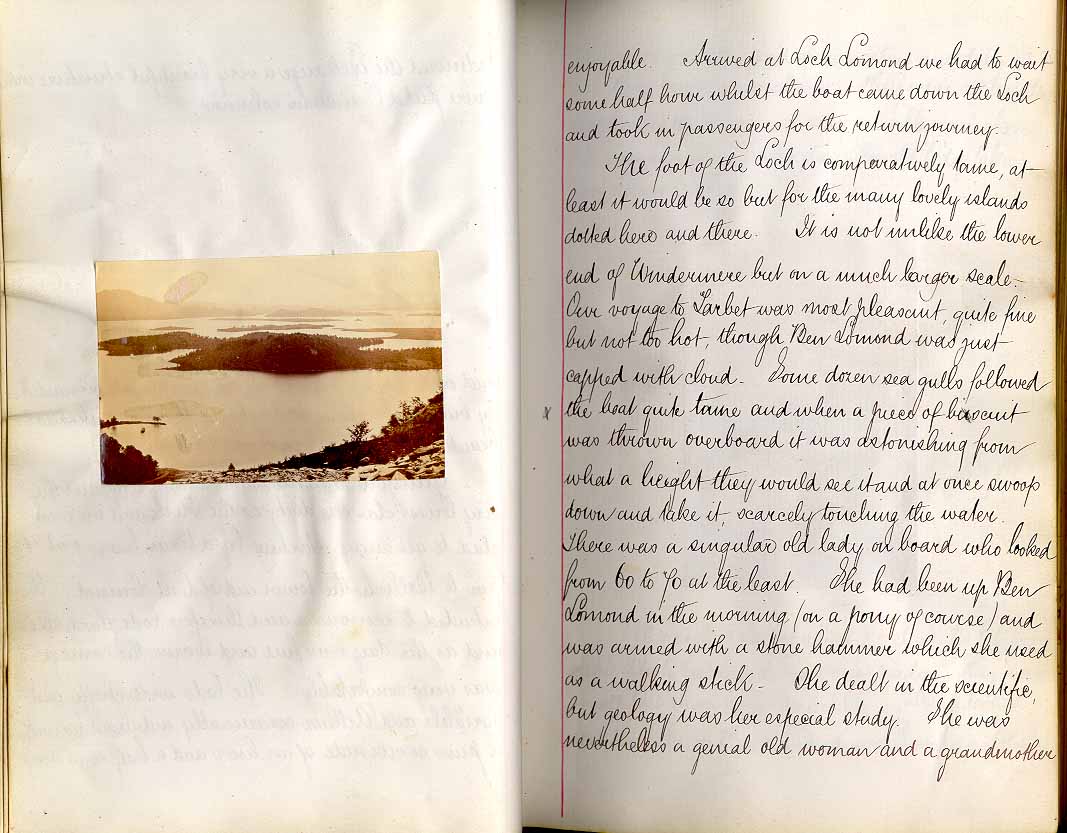 enjoyable. Arrived at Loch Lomond we had to wait
some half hour whilst the boat came down the Loch
and took in passengers for the return journey.
The foot of the Loch is comparatively tame, at
least it would be so but for the many lovely islands
dotted here and there. It is not unlike the lower
end of Windermere but on a much larger scale.
Our voyage to Tarbet was most pleasant, quite fine
but not too hot, though Ben Lomond was just
capped with cloud. Some dozen sea gulls followed
x the boat quite tame and when a piece of biscuit
was thrown overboard it was astonishing from
what a height they would see it and at once swoop
down and take it, scarcely touching the water.
There was a singular old lady on board who looked
from 60 to 70 at the least. She had been up Ben
Lomond in the morning (on a pony of course) and
was armed with a stone hammer which she used
as a walking stick. She dealt in the scientific,
but geology was her especial study. She was
nevertheless a genial old woman and a grandmother